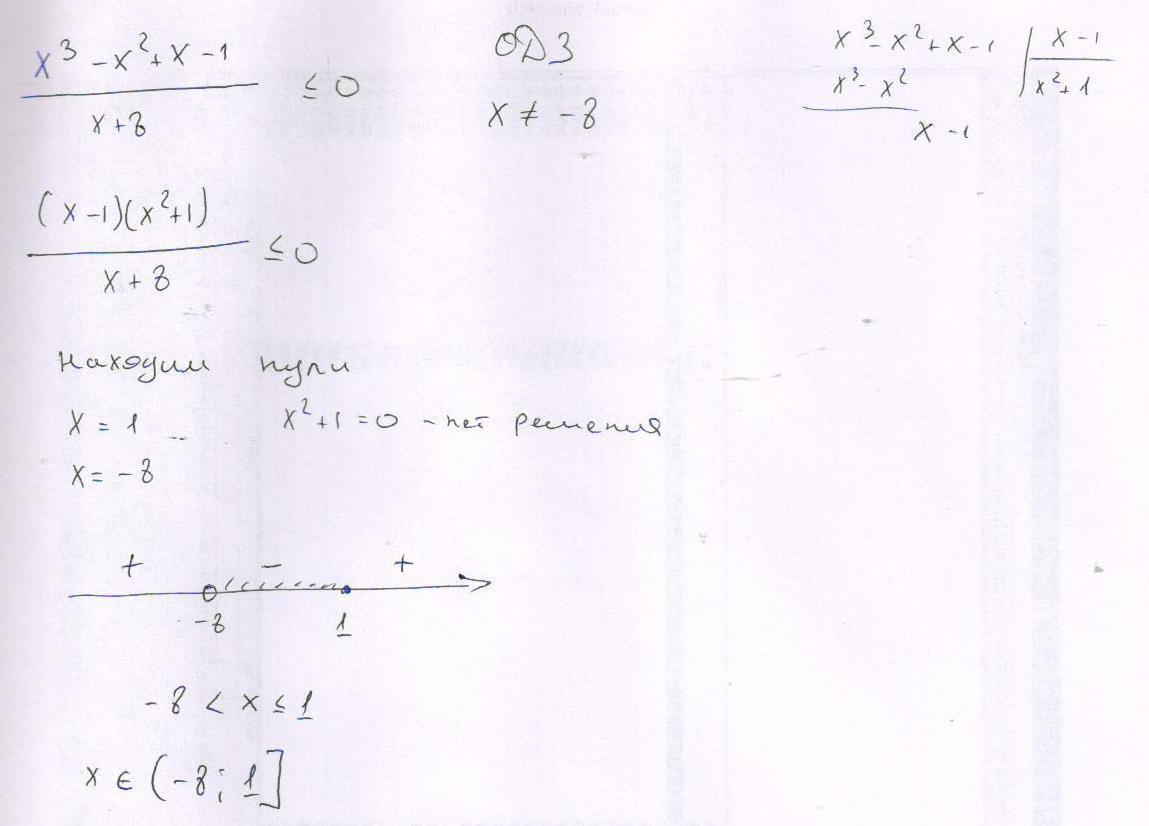 x³ - x² + x - 1
x + 8
≤ 0
ОДЗ
x ≠ -8
x³ - x² + x - 1 | x - 1
x³ - x² | x² + 1
x - 1
(x - 1)(x² + 1)
x + 8
≤ 0
находим нули
x = 1 x² + 1 = 0 - нет решения
x = -8
+ - +
-8 1
-8 < x ≤ 1
x ∈ (-8; 1]